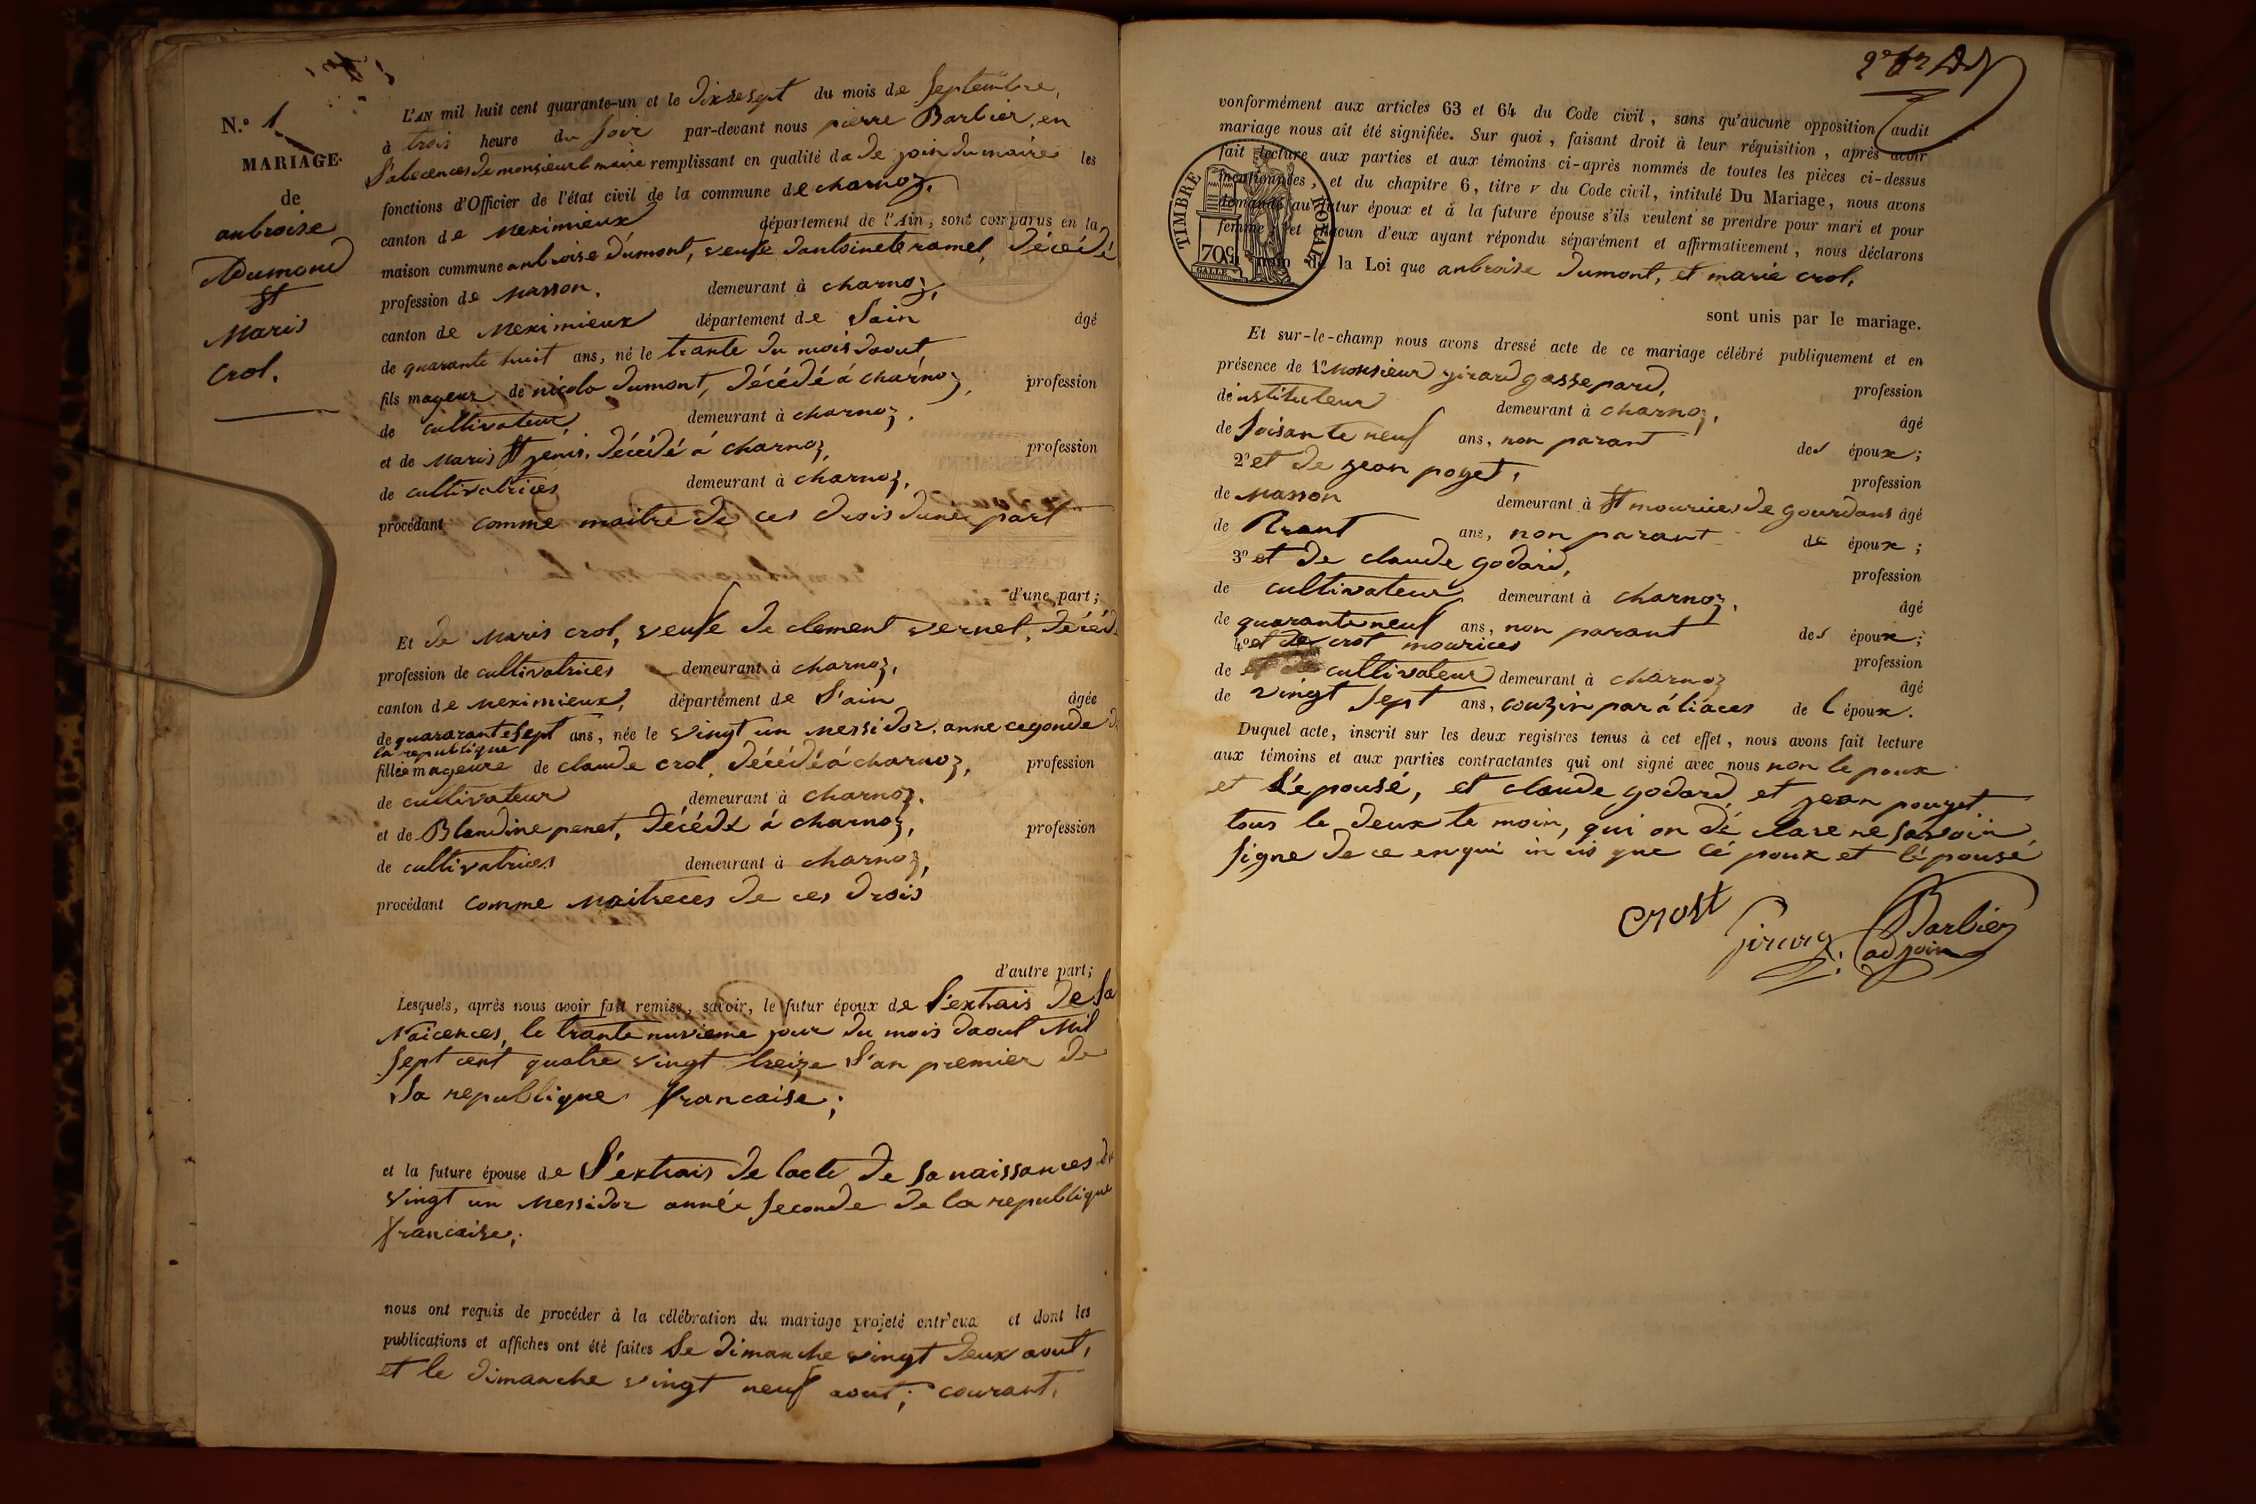 N.º 1
MARIAGE
de
anbroise
Dumond
et
Maris
Crol.
L'AN mil huit cent quarante-un et le dixsesept du mois de Septembre,
à trois heure du soir par-devant nous pierre Barbier, en
l'abecences de monsieur le maire remplissant en qualité da de join du maire les
fonctions d'Officier de l'état civil de la commune de charnoz,
canton de Meximieux département de l'Ain, sont comparus en la
maison commune anbroise dumont, veufe dantoinete ramel, décédé
profession de Masson, demeurant à charnoz,
canton de Meximieux département de Lain âgé
de quarante huit ans, né le trante du mois daout,
fils mageur de nicola dumont, décédé à charnoz, profession
de cultivateur, demeurant à charnoz,
et de Maris St jenis, décédé à charnoz, profession
de cultivatrices demeurant à charnoz,
procédant comme maitre de ces drois dune part
d'une part;
Et de Maris crol, veufe de clement vernet, décéd
profession de cultivatrices demeurant à charnoz,
canton de meximieux, département de l'ain âgée
de quararante sept ans, née le vingt un messidor, anne cegonde
la republique
fillée mageure de claude crol, décédé à charnoz, profession
de cultivateur demeurant à charnoz,
et de Blandine penet, décédé à charnoz, profession
de cultivatrices demeurant à charnoz,
procédant comme Maitreces de ces drois
d'autre part;
Lesquels, après nous avoir fait remise, savoir, le futur époux de l'extrais de sa
Naicences, le trante nuvieme jour du mois daout Mil
sept cent quatre vingt treize l'an premier de
la republique francaise;
et la future épouse de l'extrais de lacte de sa naissances du
vingt un Messidor année seconde de la republique
francaise;
nous ont requis de procéder à la célébration du mariage projeté entr'eux et dont les
publications et affiches ont été faites le dimanche vingt deux aout,
et le dimanche vingt neuf aout; courant,
conformément aux articles 63 et 64 du Code civil, sans qu'aucune opposition audit
mariage nous ait été signifiée. Sur quoi, faisant droit à leur réquisition, après avoir
fait lecture aux parties et aux témoins ci-après nommés de toutes les pièces ci-dessus
mentionnées, et du chapitre 6, titre v du Code civil, intitulé Du Mariage, nous avons
demandé au futur époux et à la future épouse s'ils veulent se prendre pour mari et pour
femme; et chacun d'eux ayant répondu séparément et affirmativement, nous déclarons
au nom de la Loi que anbroise dumont, et marie crol,
TIMBRE ROYAL
70C
sont unis par le mariage.
Et sur-le-champ nous avons dressé acte de ce mariage célébré publiquement et en
présence de 1º Monsieur girard gassepard, profession
de institeteur demeurant à charnoz, âgé
de soisante neuf ans, non parant des époux;
2º et de jean poget, profession
de Masson demeurant à St mourices de gourdans âgé
de Trant ans, non parant de époux;
3º et de claude godard, profession
de cultivateur demeurant à charnoz, âgé
de quarante neuf ans, non parant des époux;
4º et de crot mourices profession
de cultivateur demeurant à charnoz âgé
de vingt sept ans, couzin par áliaces de l époux.
Duquel acte, inscrit sur les deux registres tenus à cet effet, nous avons fait lecture
aux témoins et aux parties contractantes qui ont signé avec nous non le poux
et l'épousé, et claude godard, et jean pouget
tous le deux te moin, qui on dé clare ne savoir
signe de ce enqui in cis que lé poux et lépousé
crost
girard
Barbier
adjoin